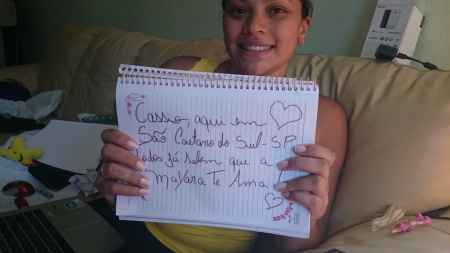 Cassio, aqui em
São Caetano do Sul-SP
todos já sabem que a
Mayara Te Ama